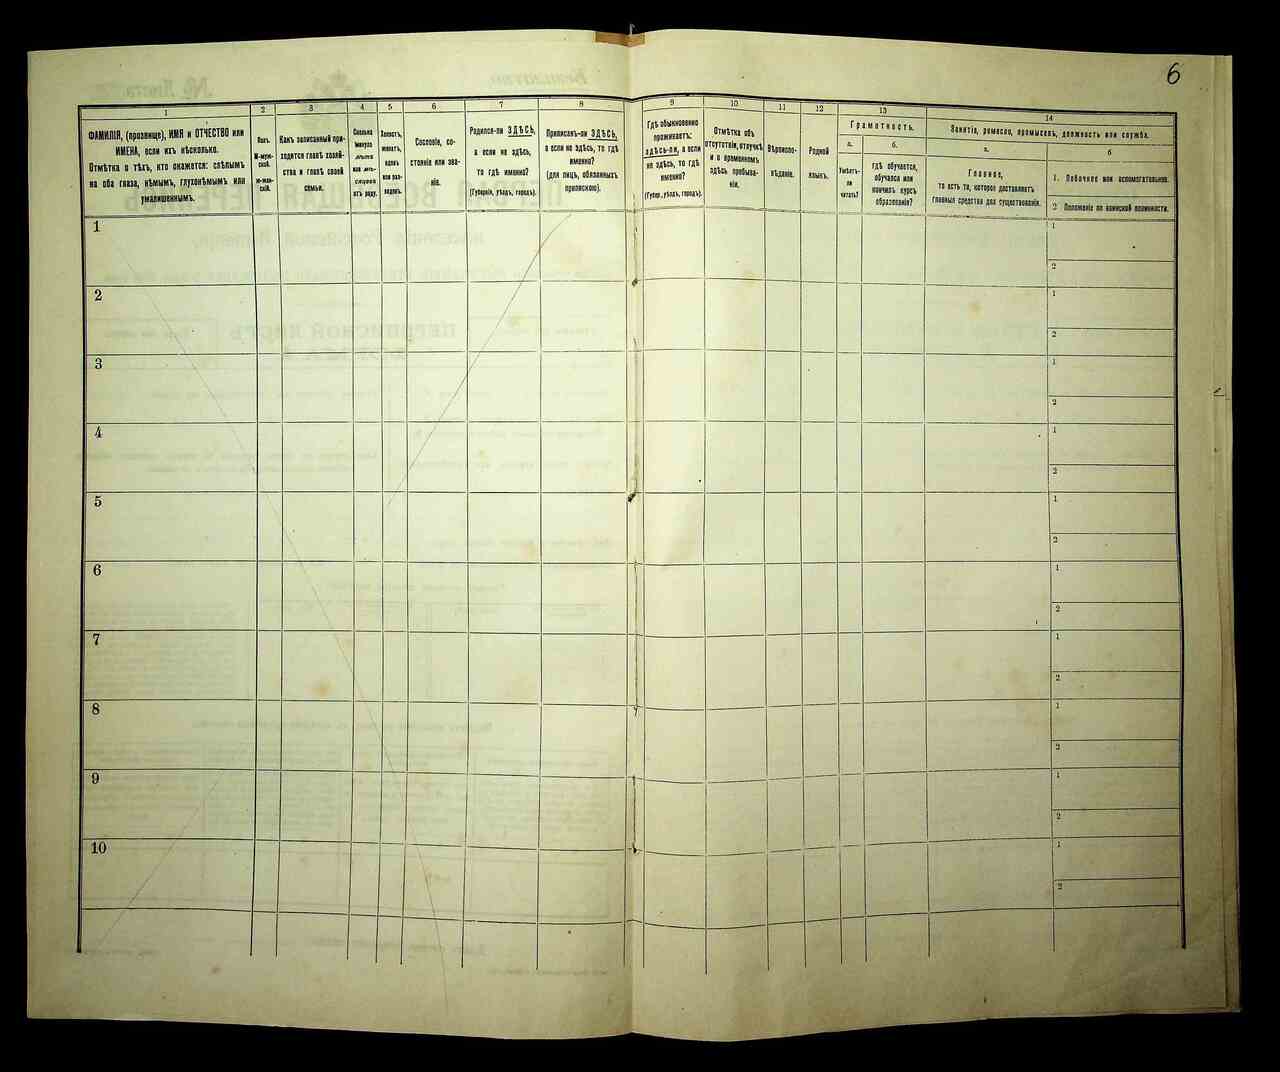 6
1
ФАМИЛІЯ, (прозвище), ИМЯ и ОТЧЕСТВО или
ИМЕНА, если ихъ нѣсколько.
Отмѣтка о тѣхъ, кто окажется: слѣпымъ
на оба глаза, нѣмымъ, глухонѣмымъ или
умалишеннымъ.
2
Полъ.
М-муж-
ской.
Ж-жен-
скій.
3
Какъ записанный при-
ходится главѣ хозяй-
ства и главѣ своей
семьи.
4
Сколько
минуло
лѣтъ
или мѣ-
сяцевъ
отъ роду.
5
Холостъ,
женатъ,
вдовъ
или раз-
веденъ.
6
Сословіе, со-
стояніе или зва-
ніе.
7
Родился-ли ЗДѢСЬ,
а если не здѣсь,
то гдѣ именно?
(Губернія, уѣздъ, городъ).
8
Приписанъ-ли ЗДѢСЬ,
а если не здѣсь, то гдѣ
именно?
(для лицъ, обязанныхъ
припискою).
9
Гдѣ обыкновенно
проживаетъ:
здѣсь-ли, а если
не здѣсь, то гдѣ
именно?
(Губер., уѣздъ, городъ).
10
Отмѣтка объ
отсутствіи, отлучкѣ
и о временномъ
здѣсь пребыва-
ніи.
11
Вѣроиспо-
вѣданіе.
12
Родной
языкъ.
13
Грамотность.
а.
Умѣетъ-
ли
читать?
б.
гдѣ обучается,
обучался или
кончилъ курсъ
образованія?
14
Занятіе, ремесло, промыселъ, должность или служба.
а.
Главное,
то есть то, которое доставляетъ
главныя средства для существованія.
б
1. Побочное или вспомогательное.
2 Положеніе по воинской повинности.
1
1
2
2
1
2
3
1
2
4
1
2
5
1
2
6
1
2
7
1
2
8
1
2
9
1
2
10
1
2